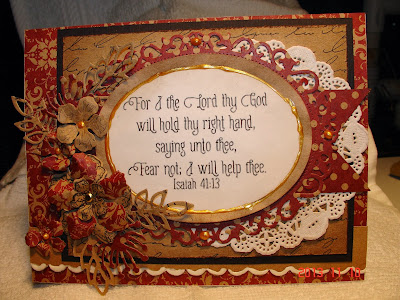 For I the Lord thy God
will hold thy right hand,
saying unto thee,
Fear not; I will help thee.
Isaiah 41:13